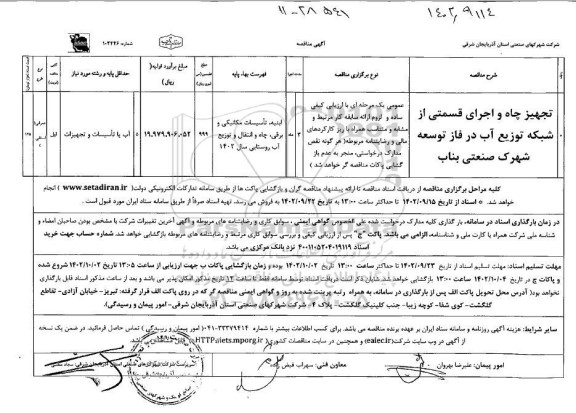 ۱۴۰۲,۹,۱۱۴
۱۱-۲۸۵۴۱
شرکت شهرکهای صنعتی استان آذربایجان شرقی
آگهی مناقصه
شماره: ۱۰۲۲۴۶
شرح مناقصه
نوع برگزاری مناقصه
فهرست بهاء پایه
مبلغ برآورد اولیه (ریال)
حداقل پایه و رشته مورد نیاز
تجهیز چاه و اجرای قسمتی از
شبکه توزیع آب در فاز توسعه
شهرک صنعتی بناب
عمومی یک مرحله ای با ارزیابی کیفی
ساده و لزوم ارائه سابقه کار مرتبط و
مشابه و متناسب همراه با ریز کارکردهای
مالی و رضایتنامه مربوطه( هر گونه نقص
مدارک درخواستی، منجر به عدم باز
گشایی پاکات مناقصه گر خواهد شد )
۳ ماه
ابنیه، تأسیسات مکانیکی و
برقی، چاه و انتقال و توزیع
آب روستایی سال ۱۴۰۲
۹۹۹
۱۹,۹۷۹,۹۰۶,۰۵۲
۵
آب یا تأسیسات و تجهیزات
کلیه مراحل برگزاری مناقصه از دریافت اسناد مناقصه تا ارائه پیشنهاد مناقصه گران و بازگشایی پاکت ها از طریق سامانه تدارکات الکترونیکی دولت( www.setadiran.ir ) انجام
خواهد شد. * اسناد از تاریخ ۱۴۰۲/۰۹/۱۵ تا حداکثر ساعت ۱۳:۰۰ به تاریخ ۱۴۰۲/۰۹/۲۲ به فروش می رسد. تهیه اسناد صرفاً از طریق سامانه ستاد ایران مورد قبول است.
در زمان بارگذاری اسناد در سامانه، بارگذاری کلیه مدارک درخواست شده علی الخصوص گواهی ایمنی، سوابق کاری و رضایتنامه های مربوطه و آگهی آخرین تغییرات شرکت با مشخص بودن صاحبان امضاء و
شناسه ملی شرکت همراه با کارت ملی و شناسنامه، الزامی می باشد. پاکت "ج" پس از ارزیابی کیفی و بررسی سوابق کاری مرتبط و رضایتنامه های مربوطه بازگشایی خواهد شد. شماره حساب جهت خرید
اسناد ۴۰۰۱۰۵۲۰۴۰۱۹۱۱۹ نزد بانک مرکزی می باشد.
مهلت تسلیم اسناد: مهلت تسلیم اسناد از تاریخ ۱۴۰۲/۰۹/۲۳ تا حداکثر ساعت ۱۳:۰۰ تاریخ ۱۴۰۲/۱۰/۰۲ بوده و زمان بازگشایی پاکات ب جهت ارزیابی از ساعت ۱۳:۰۵ تاریخ ۱۴۰۲/۱۰/۰۲ شروع شده
و پاکات ج در تاریخ ۱۴۰۲/۱۰/۰۴ ساعت ۱۳:۰۰ بازگشایی خواهد شد.
نخواهد بود( آدرس محل تحویل پاکت الف پس از بارگذاری در سامانه، به همراه رتبه پرینت شده به روز و گواهی ایمنی مناقصه گر که در روی پاکت الف قرار گرفته: تبریز- خیابان آزادی- تقاطع
گلگشت- کوی شفا- کوچه زیبا- جنب کلینیک گلگشت- پلاک ۴ - شرکت شهرکهای صنعتی استان آذربایجان شرقی- امور پیمان و رسیدگی).
سایر شرایط: هزینه آگهی روزنامه و سامانه ستاد ایران بر عهده برنده مناقصه می باشد. برای کسب اطلاعات بیشتر با شماره ۳۳۳۷۹۴۱۴-۰۴۱( امور پیمان و رسیدگی ) تماس حاصل فرمائید. در ضمن یک نسخه
از آگهی در وب سایت شرکت(eaiec.ir) و همچنین در سایت مناقصات کشوری( HTTP://iets.mporg.ir)
امور پیمان: علیرضا بهروان
معاون فنی: سهراب